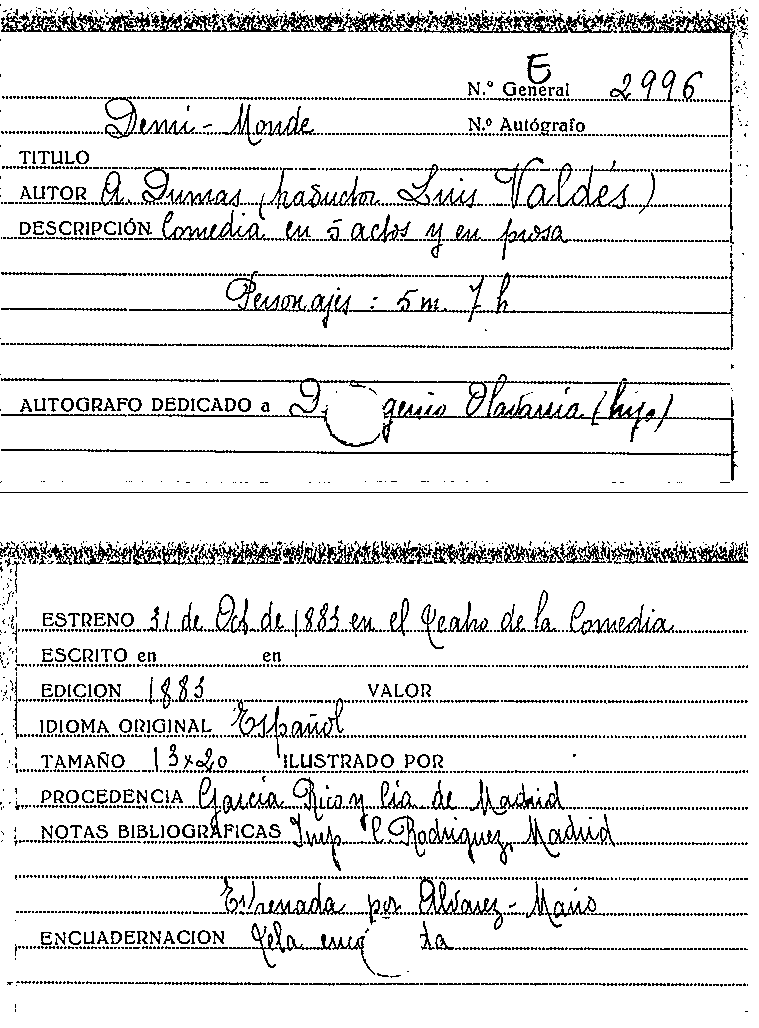 E
N.º General 2996
Demi-Monde N.º Autógrafo
TITULO
AUTOR A. Dumas (traductor Luis Valdés)
DESCRIPCIÓN Comedia en 5 actos y en prosa
Personajes: 5 m. 7 h
AUTOGRAFO DEDICADO a D. genio Olavarria (hijo)
ESTRENO 31 de Oct de 1883 en el Teatro de la Comedia
ESCRITO en en
EDICION 1883 VALOR
IDIOMA ORIGINAL Español
TAMAÑO 13x20 ILUSTRADO POR
PROCEDENCIA García Rico y Cía de Madrid
NOTAS BIBLIOGRAFICAS Imp C. Rodriguez, Madrid
Estrenada por Alvarez-Mario
ENCUADERNACION Tela